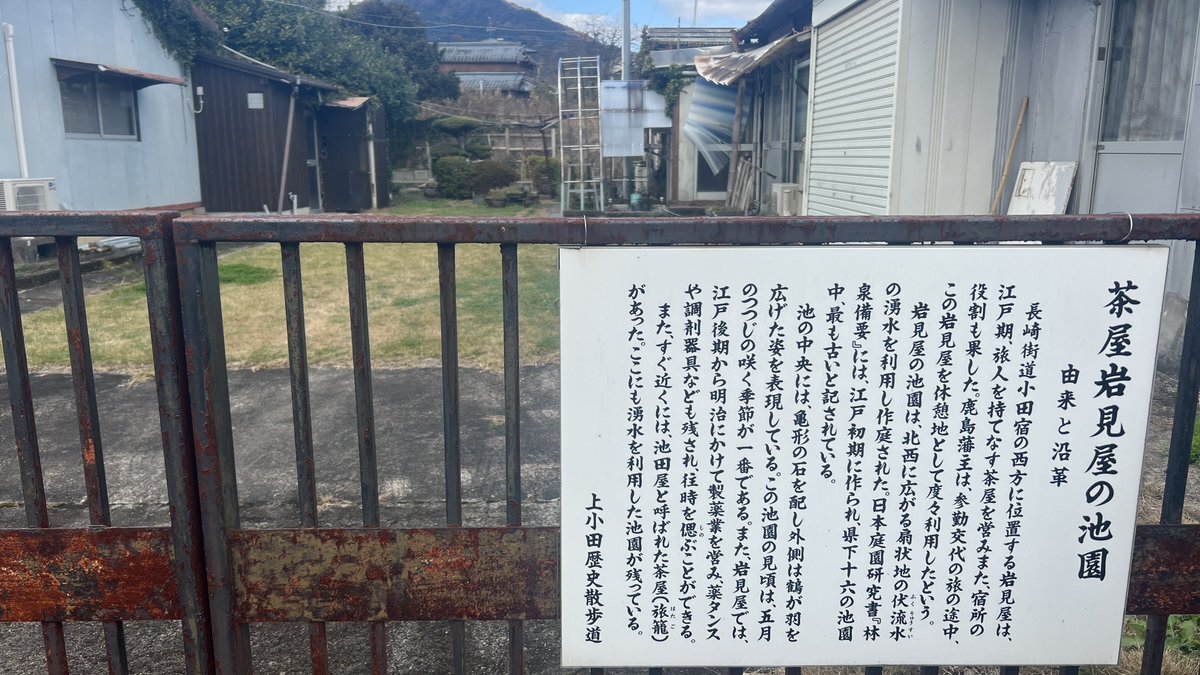 茶屋岩見屋の池園
由来と沿革
長崎街道小田宿の西方に位置する岩見屋は、
江戸期、旅人を持てなす茶屋を営みまた、宿所の
役割も果した。鹿島藩主は、参勤交代の旅の途中、
この岩見屋を休憩地として度々利用したという。
岩見屋の池園は、北西に広がる扇状地の伏流水
ふくりゅうすい
の湧水を利用し作庭された。日本庭園研究書『林
泉備要』には、江戸初期に作られ、県下十六の池園
中、最も古いと記されている。
池の中央には、亀形の石を配し外側は鶴が羽を
広げた姿を表現している。この池園の見頃は、五月
のつつじの咲く季節が一番である。また、岩見屋では、
江戸後期から明治にかけて製薬業を営み、薬タンス
や調剤器具なども残され、往時を偲ぶことができる。
しの
また、すぐ近くには、池田屋と呼ばれた茶屋(旅籠)
はたご
があった。ここにも湧水を利用した池園が残っている。
上小田歴史散歩道